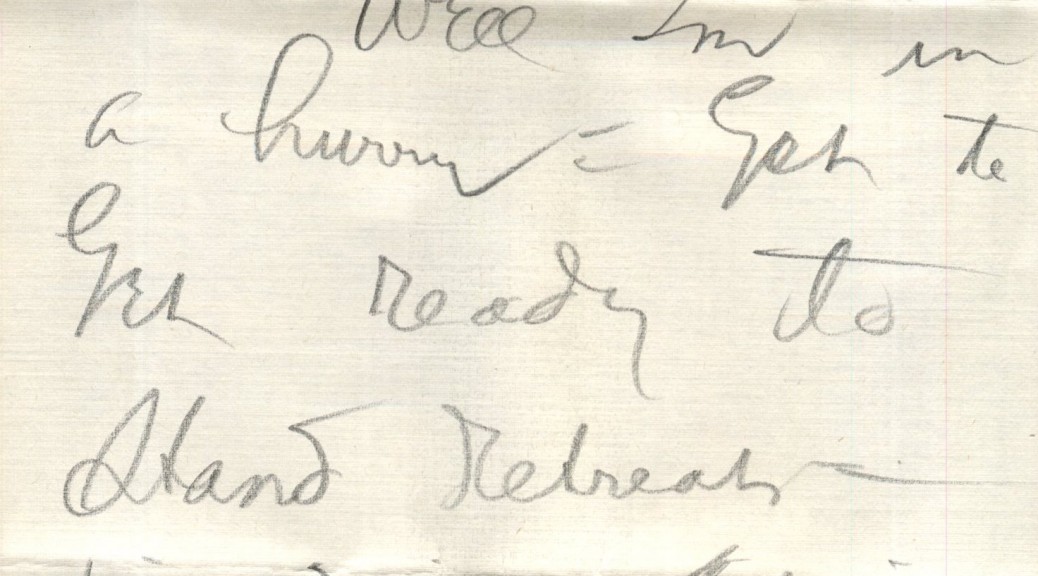 Well Im in
a hurry = Got to
Get ready to
Stand Retreat —